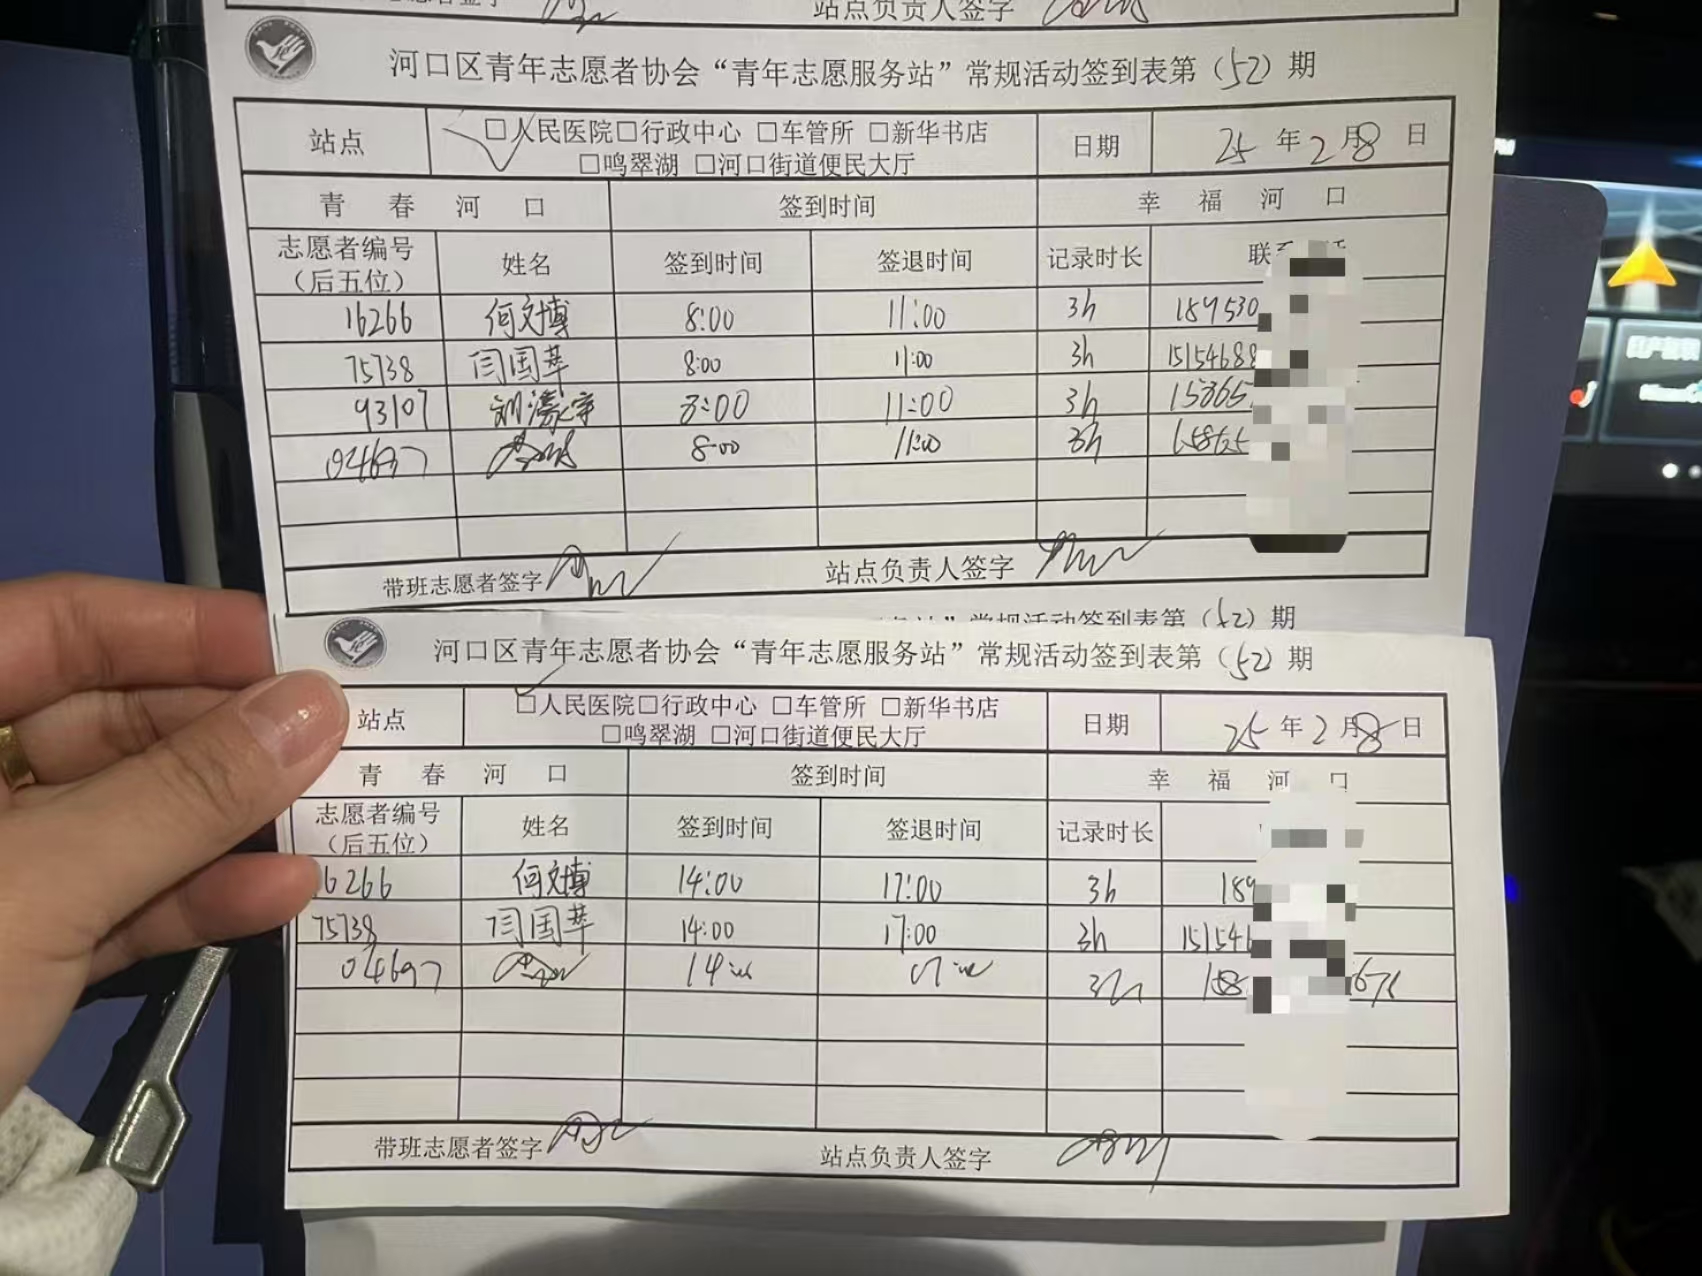 站点负责人签字
河口区青年志愿者协会“青年志愿服务站”常规活动签到表第（52）期
站点 □人民医院□行政中心 □车管所 □新华书店 日期 25年2月8日
□鸣翠湖 □河口街道便民大厅
青春河口 签到时间 幸福河口
志愿者编号 姓名 签到时间 签退时间 记录时长 联
（后五位）
16266 何文博 8:00 11:00 3h 189530
75738 闫国苹 8:00 11:00 3h 15154688
93107 8:00 11:00 3h 15865
04697 8:00 11:00 3h 15865
带班志愿者签字 站点负责人签字
常规活动签到表第（52）期
河口区青年志愿者协会“青年志愿服务站”常规活动签到表第（52）期
站点 □人民医院□行政中心 □车管所 □新华书店 日期 25年2月8日
□鸣翠湖 □河口街道便民大厅
青春河口 签到时间 幸福河口
志愿者编号 姓名 签到时间 签退时间 记录时长
（后五位）
6266 何文博 14:00 17:00 3h 189
75738 闫国苹 14:00 17:00 3h 15154
04697 14:00 17:00 3h 158
带班志愿者签字 站点负责人签字